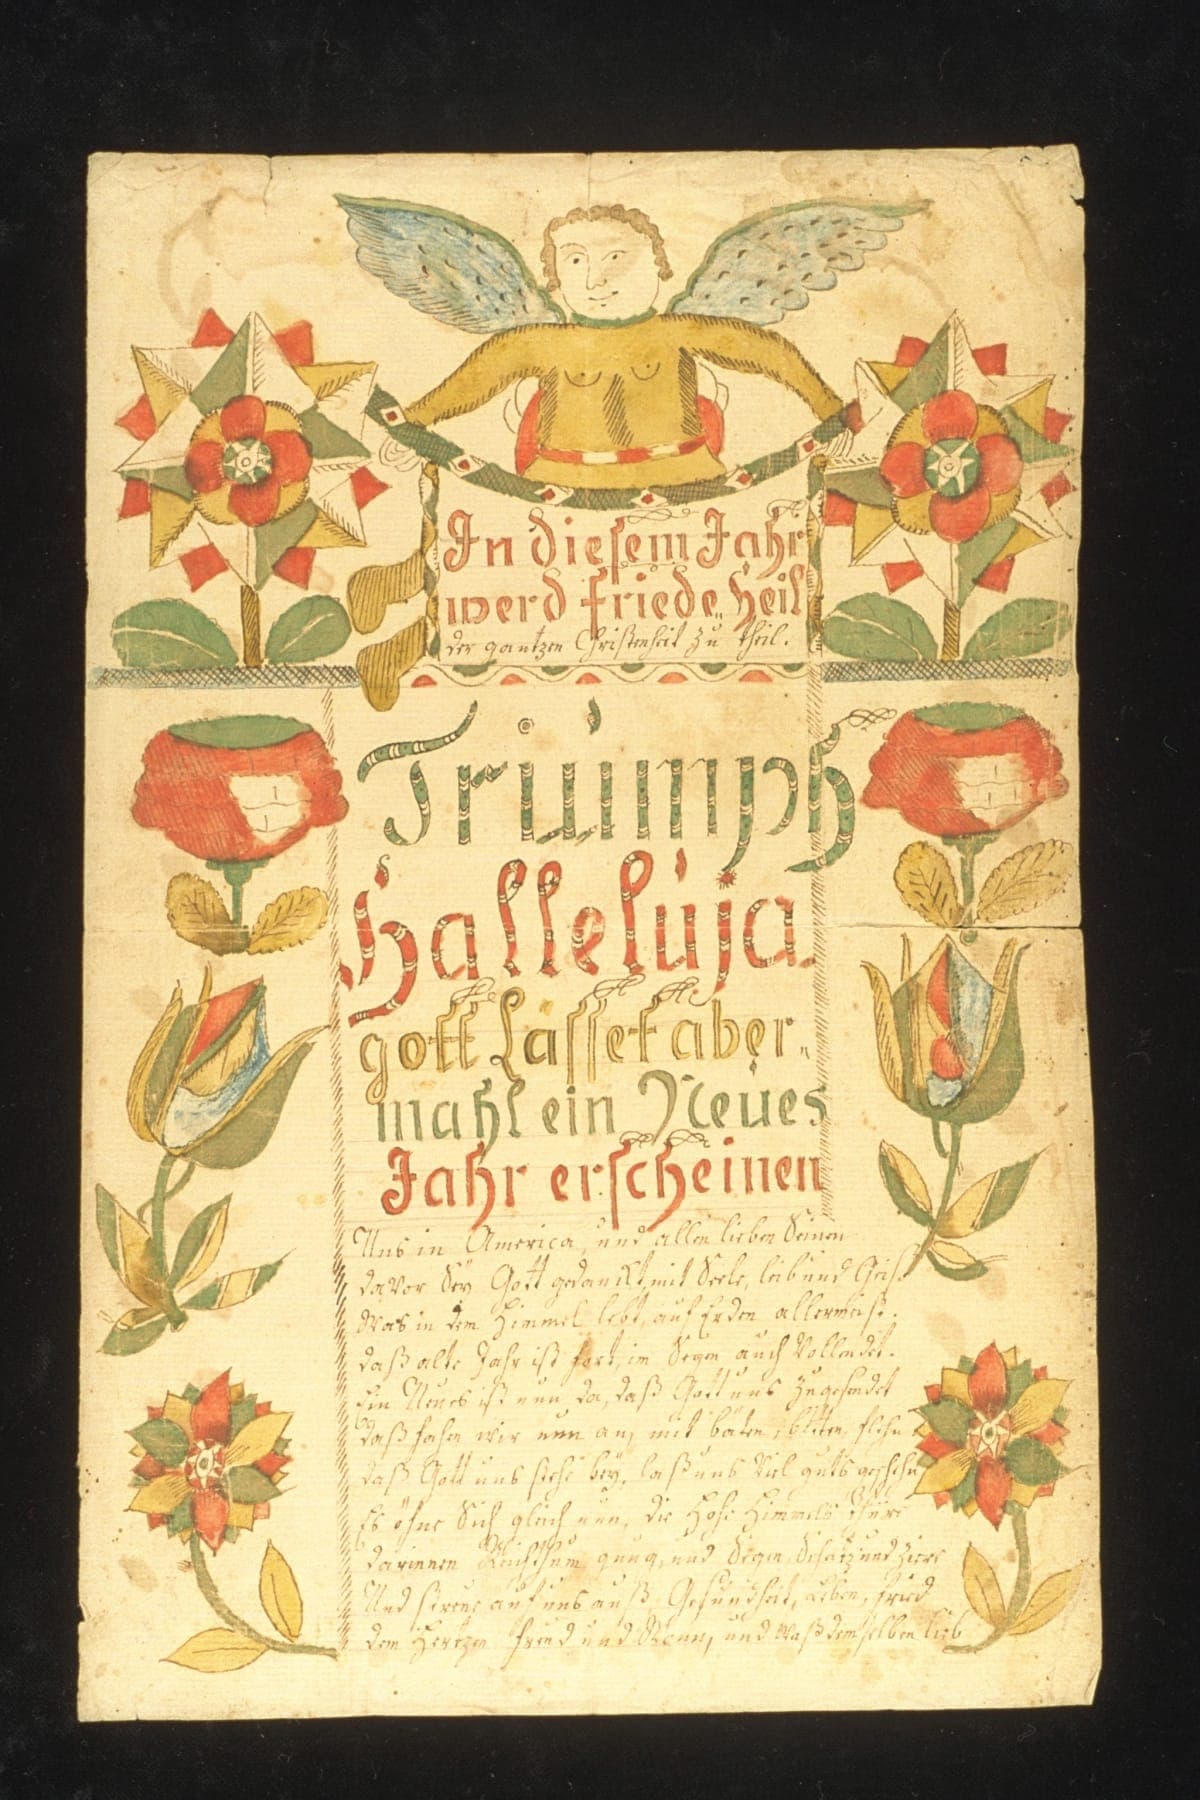 In diesem Jahr
werd friede, Heil
der gantzen Christenheit zu theil.
Triumph
Halleluja
gott Lasset aber„
mahl ein Neues
Jahr erscheinen
Uns in America, und allen lieben Seinen
davor Sey Gott gedanckt, mit Seele, leib und Geist
Was in dem Himmel lebt, auf Erden allermeist.
daß alte Jahr ist fort, im Segen auch Vollendet.
Ein Neues ist nun da, daß Gott uns zugesendet
daß fahen wir nun an, mit bäten, bitten, flehn
daß Gott uns stehe bey, laß uns Viel guts geschehn
Es öfne Sich gleich nun, die Hohe Himmels thüre
darinnen Reichthum gnug, und Segen, Schätz und Ziere
Und streue auf uns auß Gesundheit, Leben, fried
dem Hertzen freud und Wonn, und Waß demselben lieb